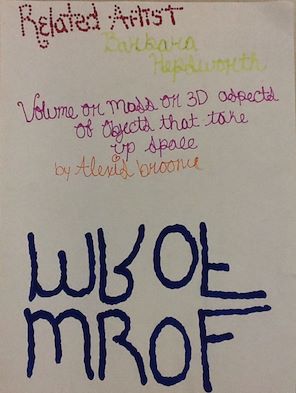 Related Artist
Barbara
Hepsworth
Volume or mass or 3D aspects
of objects that take
up space
by Alexis broome
MROF